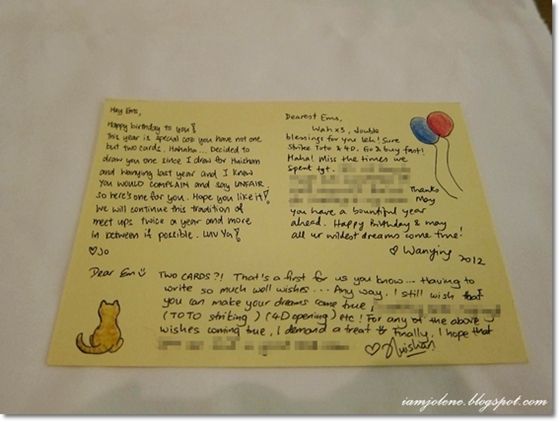 Hey Ems,
Happy birthday to you!
This year is special coz you have not one
but two cards. Hahaha... Decided to
draw you one since I drew for Huishan
and Wanying last year and I know
YOU WOULD COMPLAIN and say UNFAIR
so here's one for you. Hope you like it!
We will continue this tradition of
meet ups twice a year and more
in between if possible. LUV YA!
♡Jo
Dearest Ems,
Wah x3, double
blessings for you leh! Sure
Strike Toto & 4D. Go & buy fast!
Haha! Miss the times we
spent tgt.
Thanks
May
you have a bountiful year
ahead. Happy Birthday & may
all ur wildest dreams come true!
♡ Wanying
2012
Dear Em
TWO CARDS?! That's a first for us you know... Having to
write so much well wishes... Any way, I still wish that
you can make your dreams come true,
(TOTO striking) (4D opening) etc! For any of the above
wishes coming true, I demand a treat Finally, I hope that
♡ Huishan
iamjolene.blogspot.com